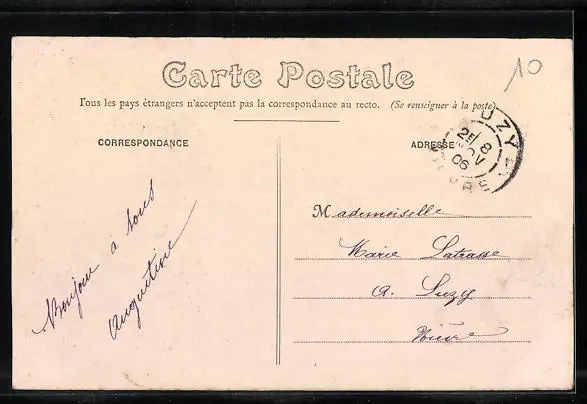 10
Carte Postale
Tous les pays étrangers n'acceptent pas la correspondance au recto. (Se renseigner à la poste)
CORRESPONDANCE
ADRESSE
UZY
2E 8
NOV
06
NIEVRE
Bonjour à tous
Augustine
Mademoiselle
Marie
A. Luzy
Nièvre